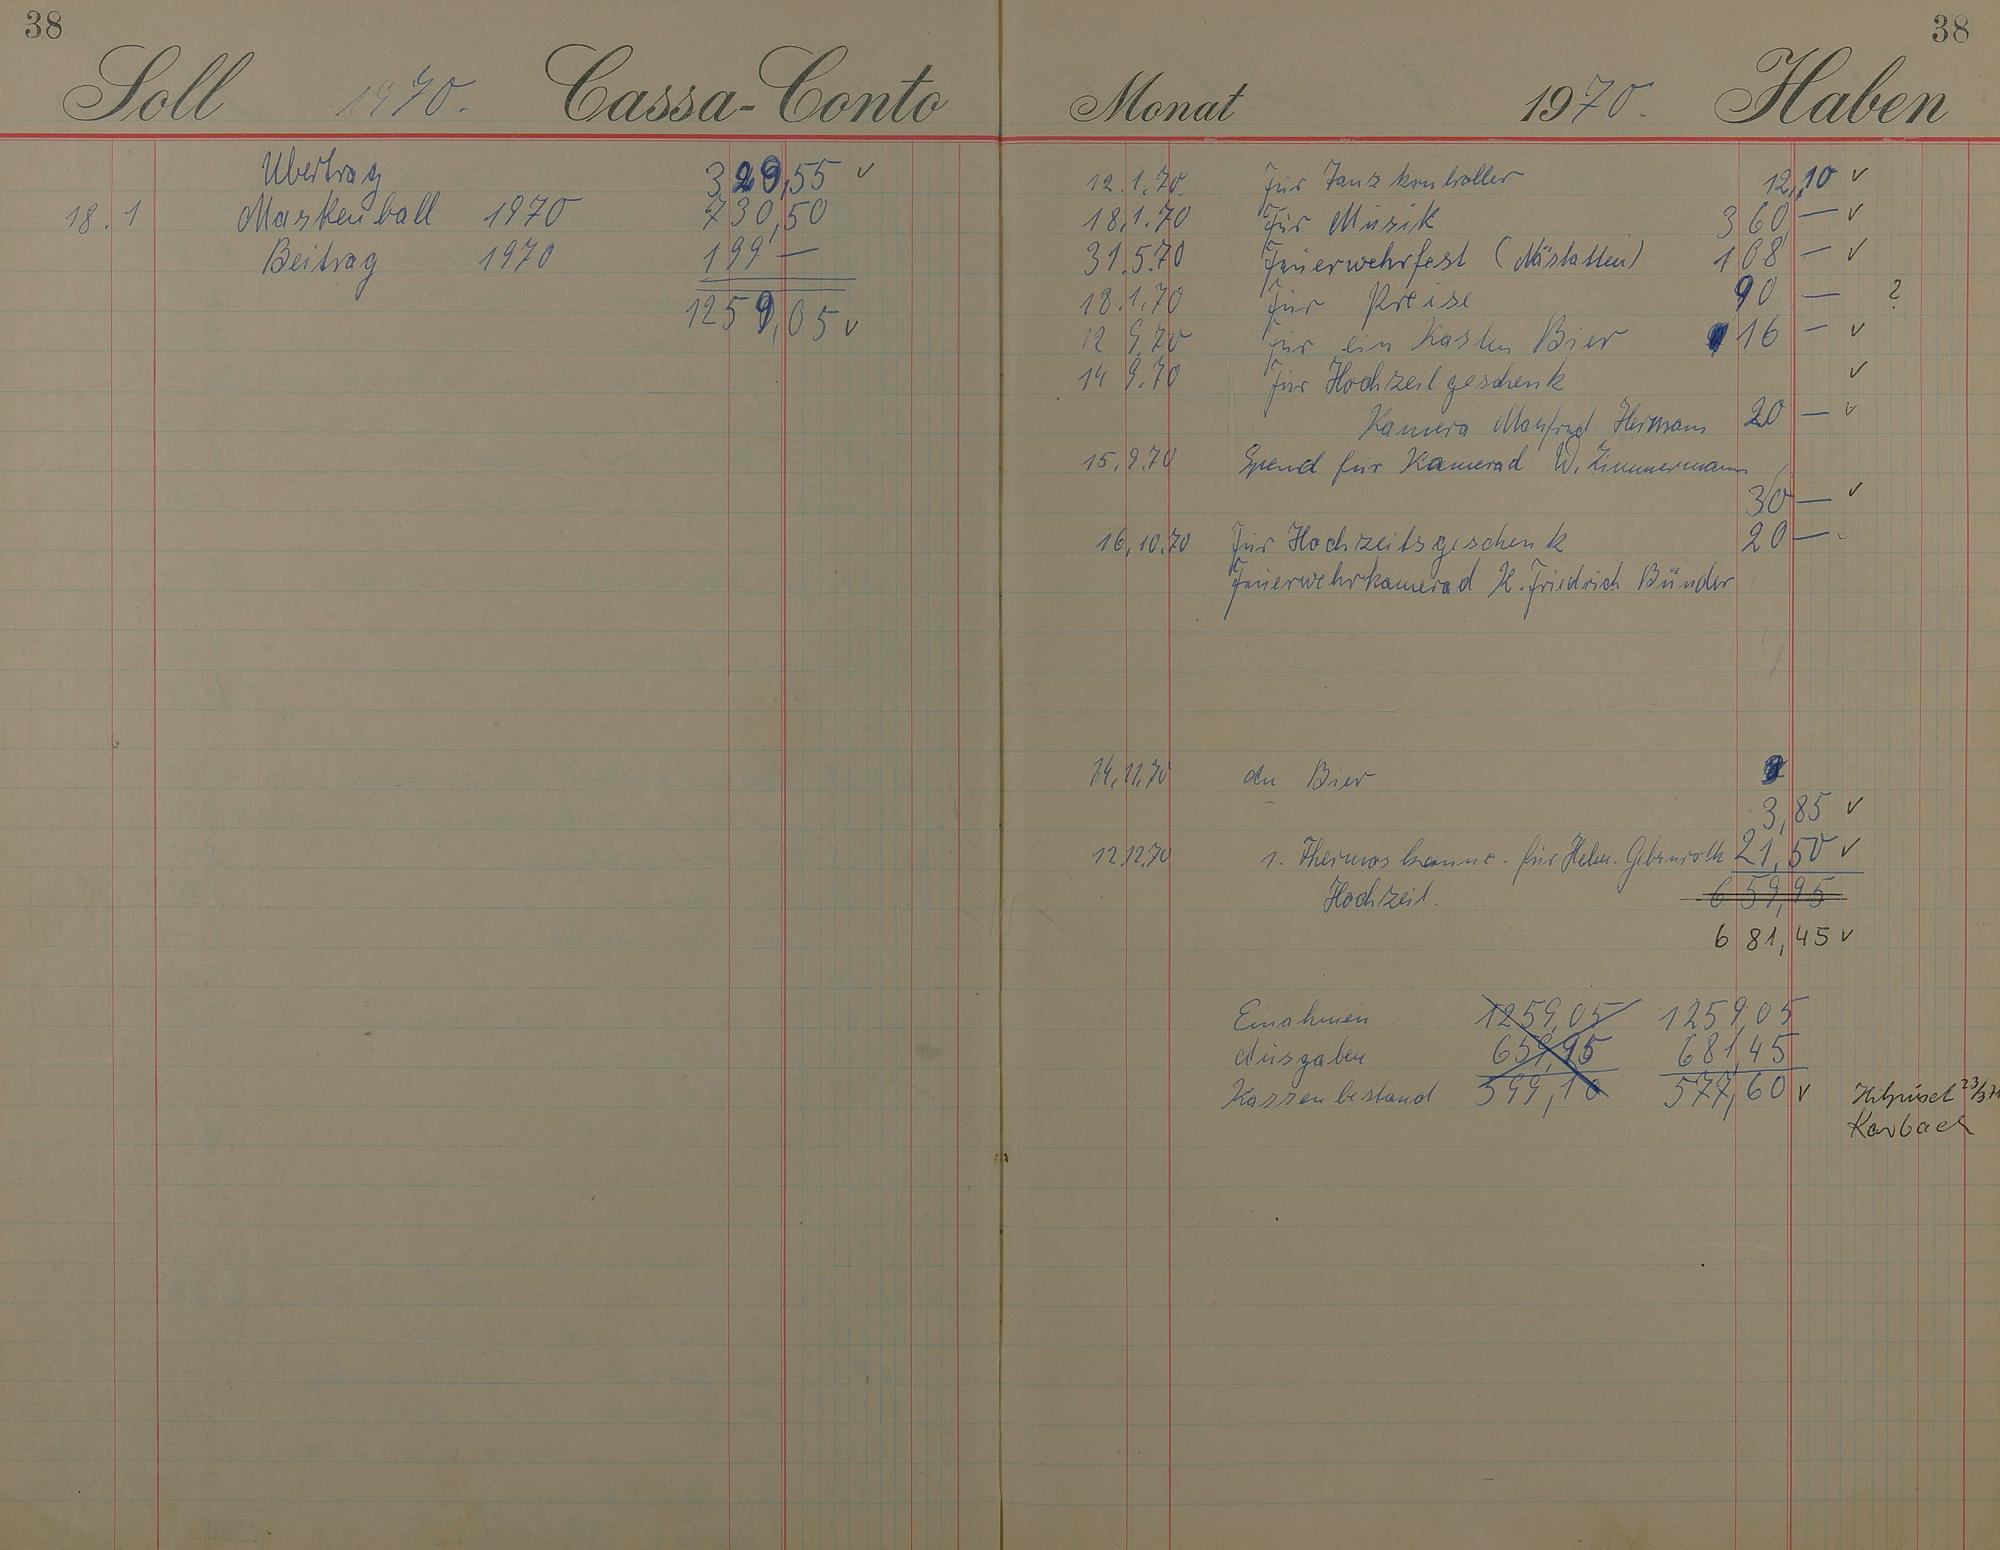 38
Soll 1970. Cassa-Conto
Übertrag 329,55 ✓
18. 1 Maskenball 1970 730,50
Beitrag 1970 199 —
1259,05 ✓
38
Monat 1970. Haben
12.1.70. für Tanzkontroller 12,10 ✓
18.1.70 für Musik 360 — ✓
31.5.70 Feuerwehrfest (Nästatten) 108 — ✓
18.1.70 für Preise 90 — ?
12 9.70 für ein Kasten Bier 16 — ✓
14 9.70 für Hochzeitgeschenk ✓
Kamera Manfred Hermann 20 — ✓
15.9.70 Spend für Kamerad W. Zimmermann
30 — ✓
16.10.70 für Hochzeitsgeschenk 20 —
Feuerwehrkamerad K. Friedrich Bünder
14.11.70 an Bier
3,85 ✓
12.12.70 1. Thermoskanne. für Helm. Gebenroth 21,50 ✓
Hochzeit. 659,95
681,45 ✓
Einahmen 1259,05 1259,05
Ausgaben 659,95 681,45
Kassenbestand 599,10 577,60 ✓
Karbach